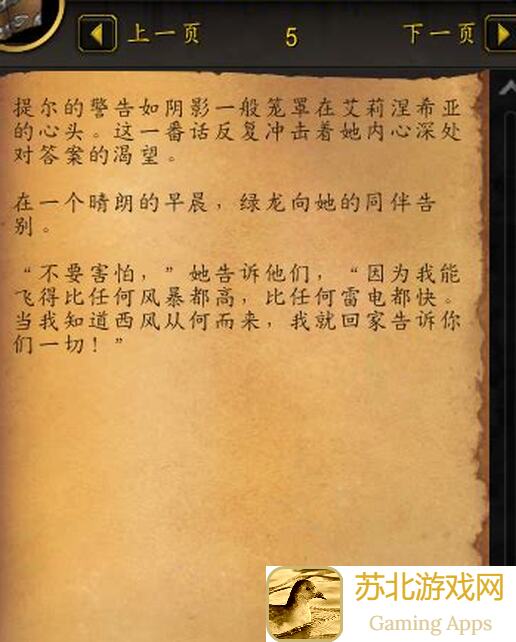 上一页 5 下一页
提尔的警告如阴影一般笼罩在艾莉涅希亚
的心头。这一番话反复冲击着她内心深处
对答案的渴望。
在一个晴朗的早晨，绿龙向她的同伴告
别。
“不要害怕，”她告诉他们，“因为我能
飞得比任何风暴都高，比任何雷电都快。
当我知道西风从何而来，我就回家告诉你
们一切！”
苏北游戏网
Gaming Apps